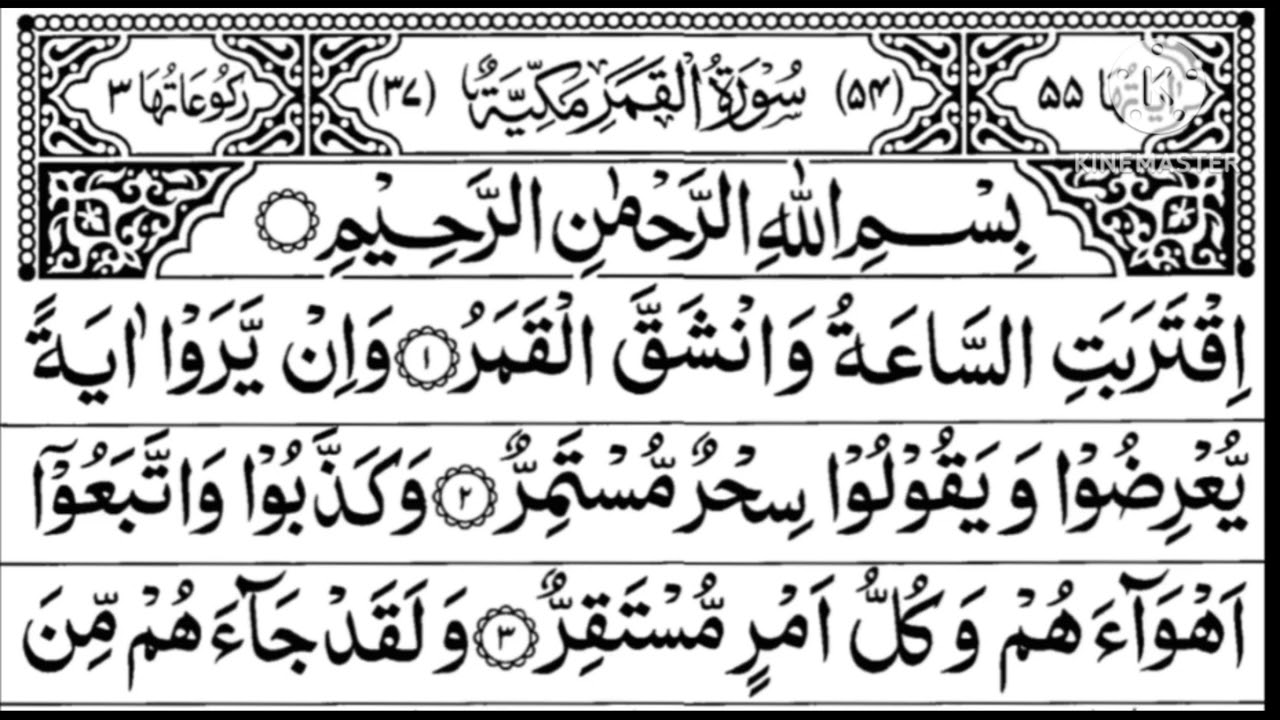 اٰيَاتُهَا ۵۵ (۵۴) سُوْرَةُ الْقَمَرِ مَكِّيَّةٌ (۳۷) رُكُوْعَاتُهَا ۳
KINEMASTER
بِسْمِ اللّٰهِ الرَّحْمٰنِ الرَّحِيْمِ ۝
اِقْتَرَبَتِ السَّاعَةُ وَانْشَقَّ الْقَمَرُ ۝۱ وَاِنْ يَّرَوْا اٰيَةً
يُّعْرِضُوْا وَيَقُوْلُوْا سِحْرٌ مُّسْتَمِرٌّ ۝۲ وَكَذَّبُوْا وَاتَّبَعُوْٓا
اَهْوَآءَهُمْ وَكُلُّ اَمْرٍ مُّسْتَقِرٌّ ۝۳ وَلَقَدْ جَآءَهُمْ مِّنَ